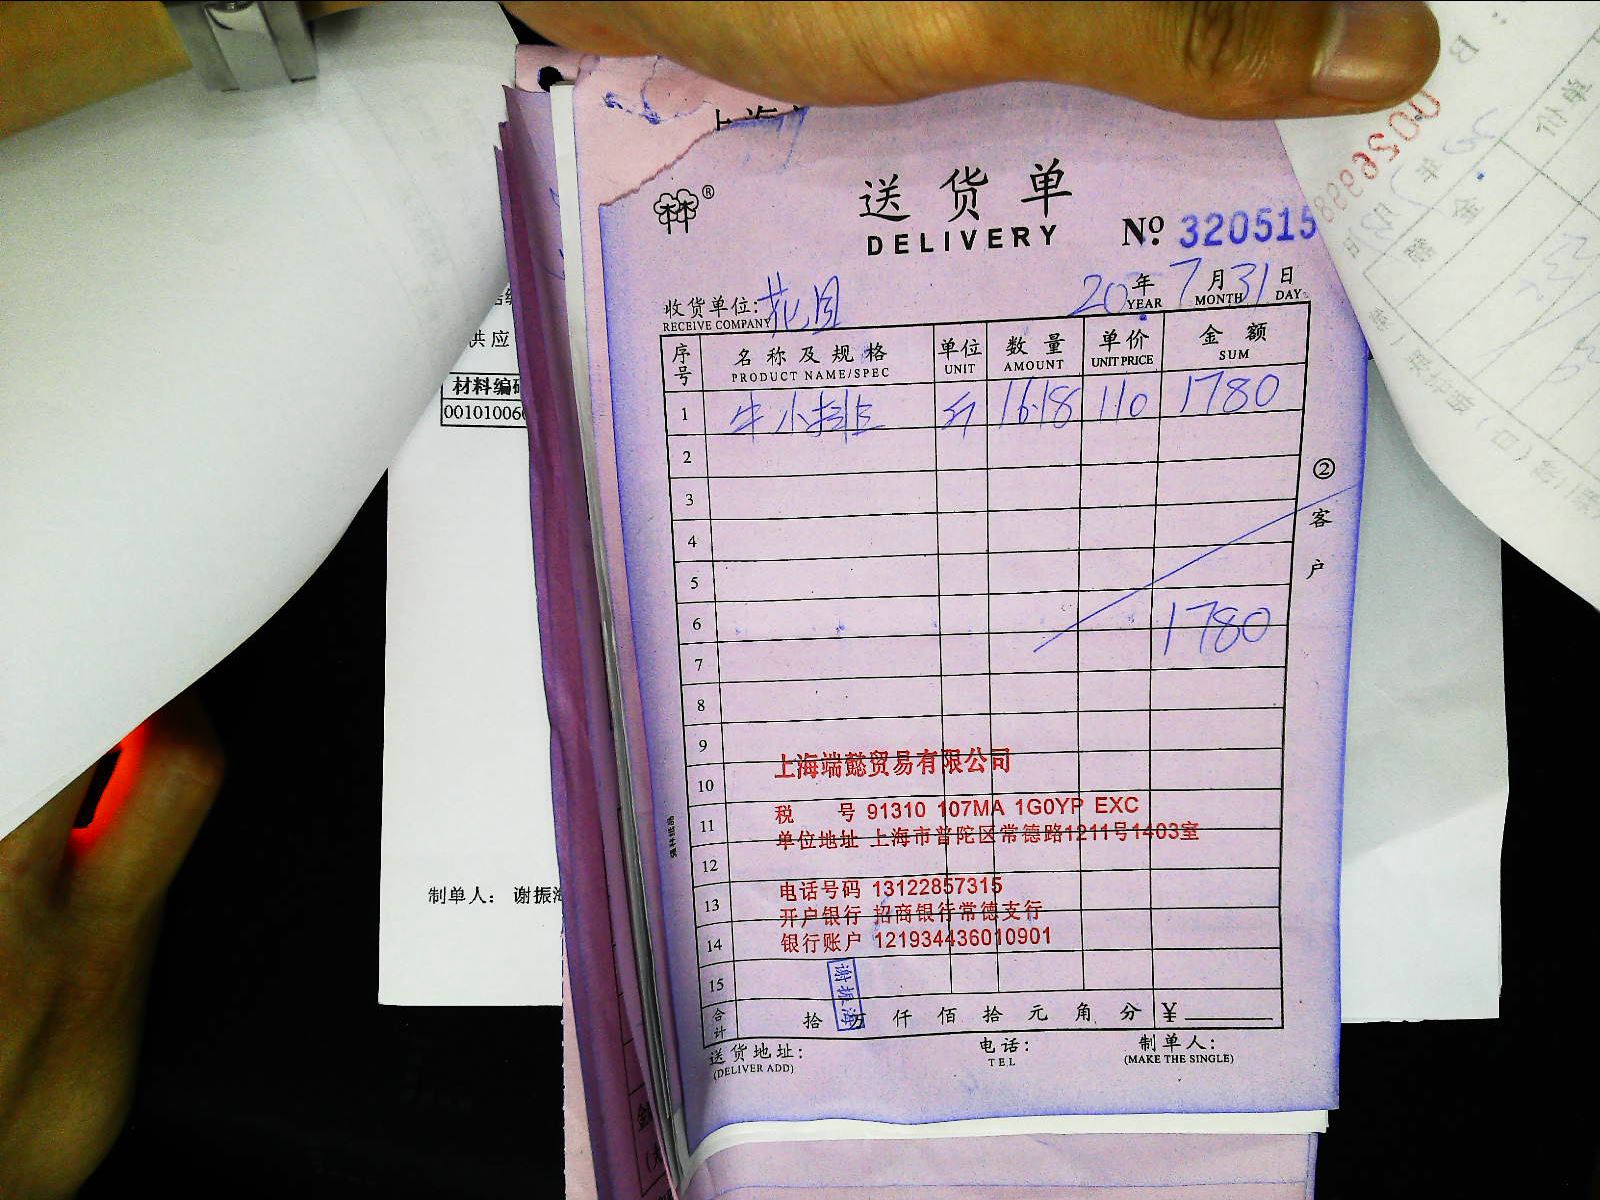 送货单
DELIVERY
No. 320515
收货单位: 花月
RECEIVE COMPANY
20 年 7 月 31 日
YEAR MONTH DAY
序号 名称及规格 单位 数量 单价 金额
PRODUCT NAME/SPEC UNIT AMOUNT UNIT PRICE SUM
1 牛小排 斤 16.18 110 1780
2
3
4
5
6 1780
7
8
9
10
11
12
13
14
15
上海端懿贸易有限公司
税 号 91310 107MA 1G0YP EXC
单位地址 上海市普陀区常德路1211号1403室
电话号码 13122857315
开户银行 招商银行常德支行
银行账户 121934436010901
谢振海
合计 拾 万 仟 佰 拾 元 角 分 ¥
送货地址: 电话: 制单人:
(DELIVER ADD) TEL (MAKE THE SINGLE)
② 客户
供应
材料编码
00101006
制单人: 谢振海
单价
金额